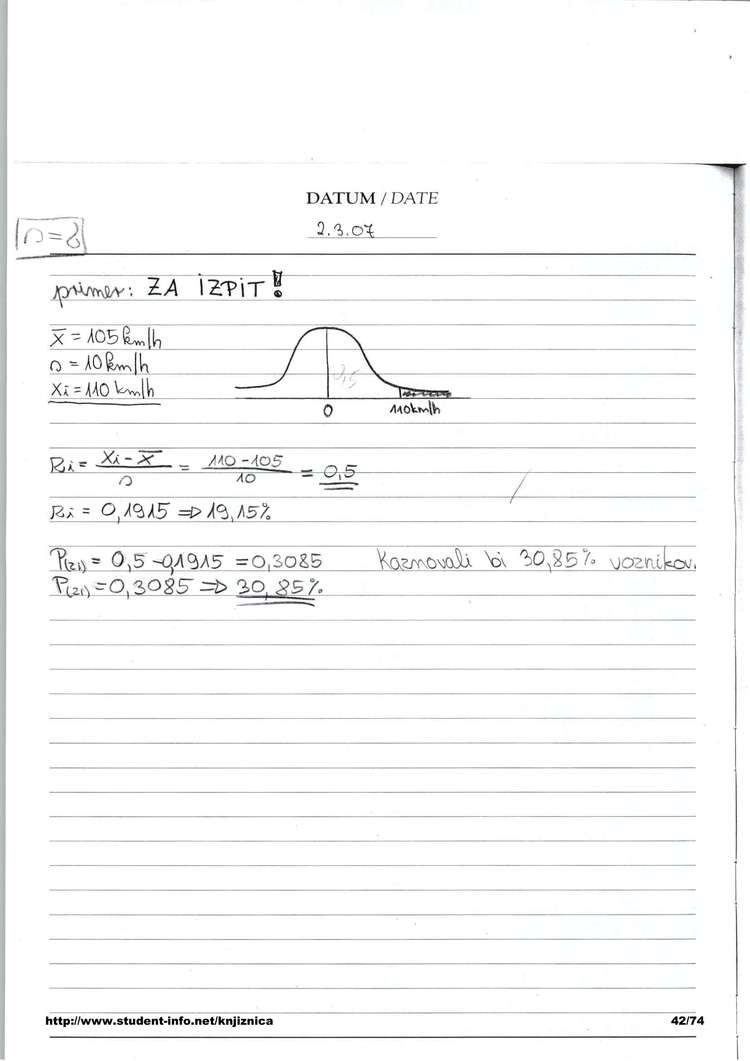 DATUM / DATE
2.3.07
primer: ZA IZPIT!
x̄ = 105 km/h
σ = 10 km/h
xi = 110 km/h
0,5
0
110km/h
Ri = xi - x̄ / σ = 110 - 105 / 10 = 0,5
Ri = 0,1915 ⇒ 19,15%
P(zi) = 0,5 - 0,1915 = 0,3085 Kaznovali bi 30,85% voznikov.
P(zi) = 0,3085 ⇒ 30,85%
http://www.student-info.net/knjiznica
42/74